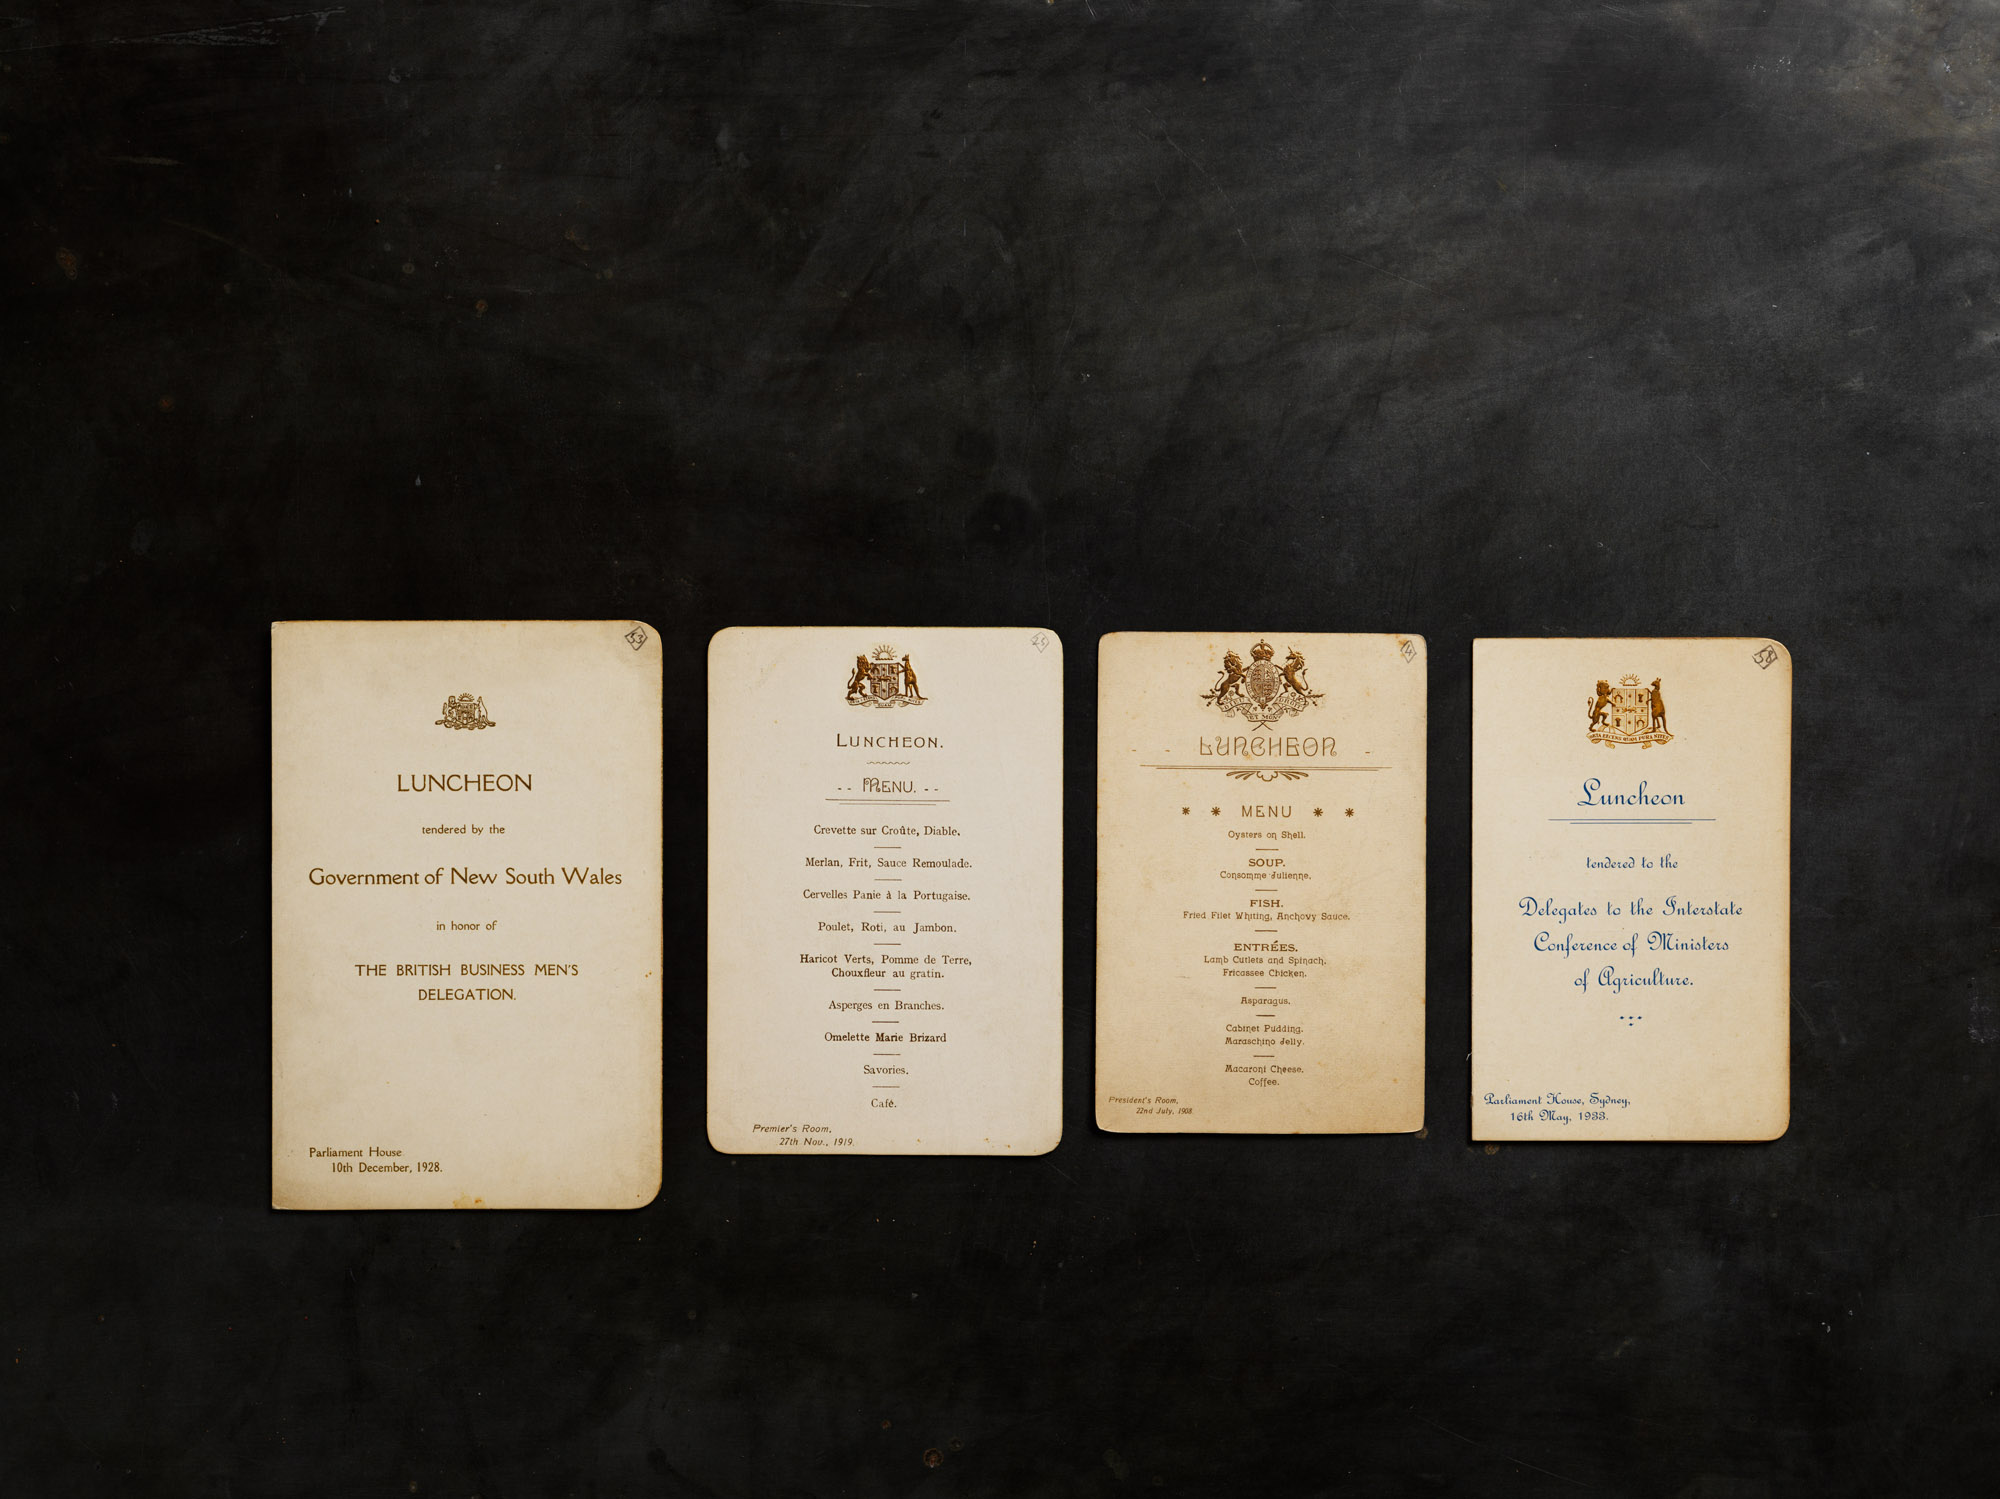 53
LUNCHEON
tendered by the
Government of New South Wales
in honor of
THE BRITISH BUSINESS MEN'S
DELEGATION.
Parliament House
10th December, 1928.
25
LUNCHEON.
-- MENU. --
Crevette sur Croûte, Diable.
Merlan, Frit, Sauce Remoulade.
Cervelles Panie à la Portugaise.
Poulet, Roti, au Jambon.
Haricot Verts, Pomme de Terre,
Chouxfleur au gratin.
Asperges en Branches.
Omelette Marie Brizard
Savories.
Café.
Premier's Room,
27th Nov., 1919.
4
LUNCHEON
* * MENU * *
Oysters on Shell.
SOUP.
Consomme Julienne.
FISH.
Fried Filet Whiting, Anchovy Sauce.
ENTRÉES.
Lamb Cutlets and Spinach.
Fricassee Chicken.
Asparagus.
Cabinet Pudding.
Maraschino Jelly.
Macaroni Cheese.
Coffee.
President's Room,
22nd July, 1908.
58
ORTA RECENS QUAM PURA NITES
Luncheon
tendered to the
Delegates to the Interstate
Conference of Ministers
of Agriculture.
Parliament House, Sydney,
16th May, 1933.